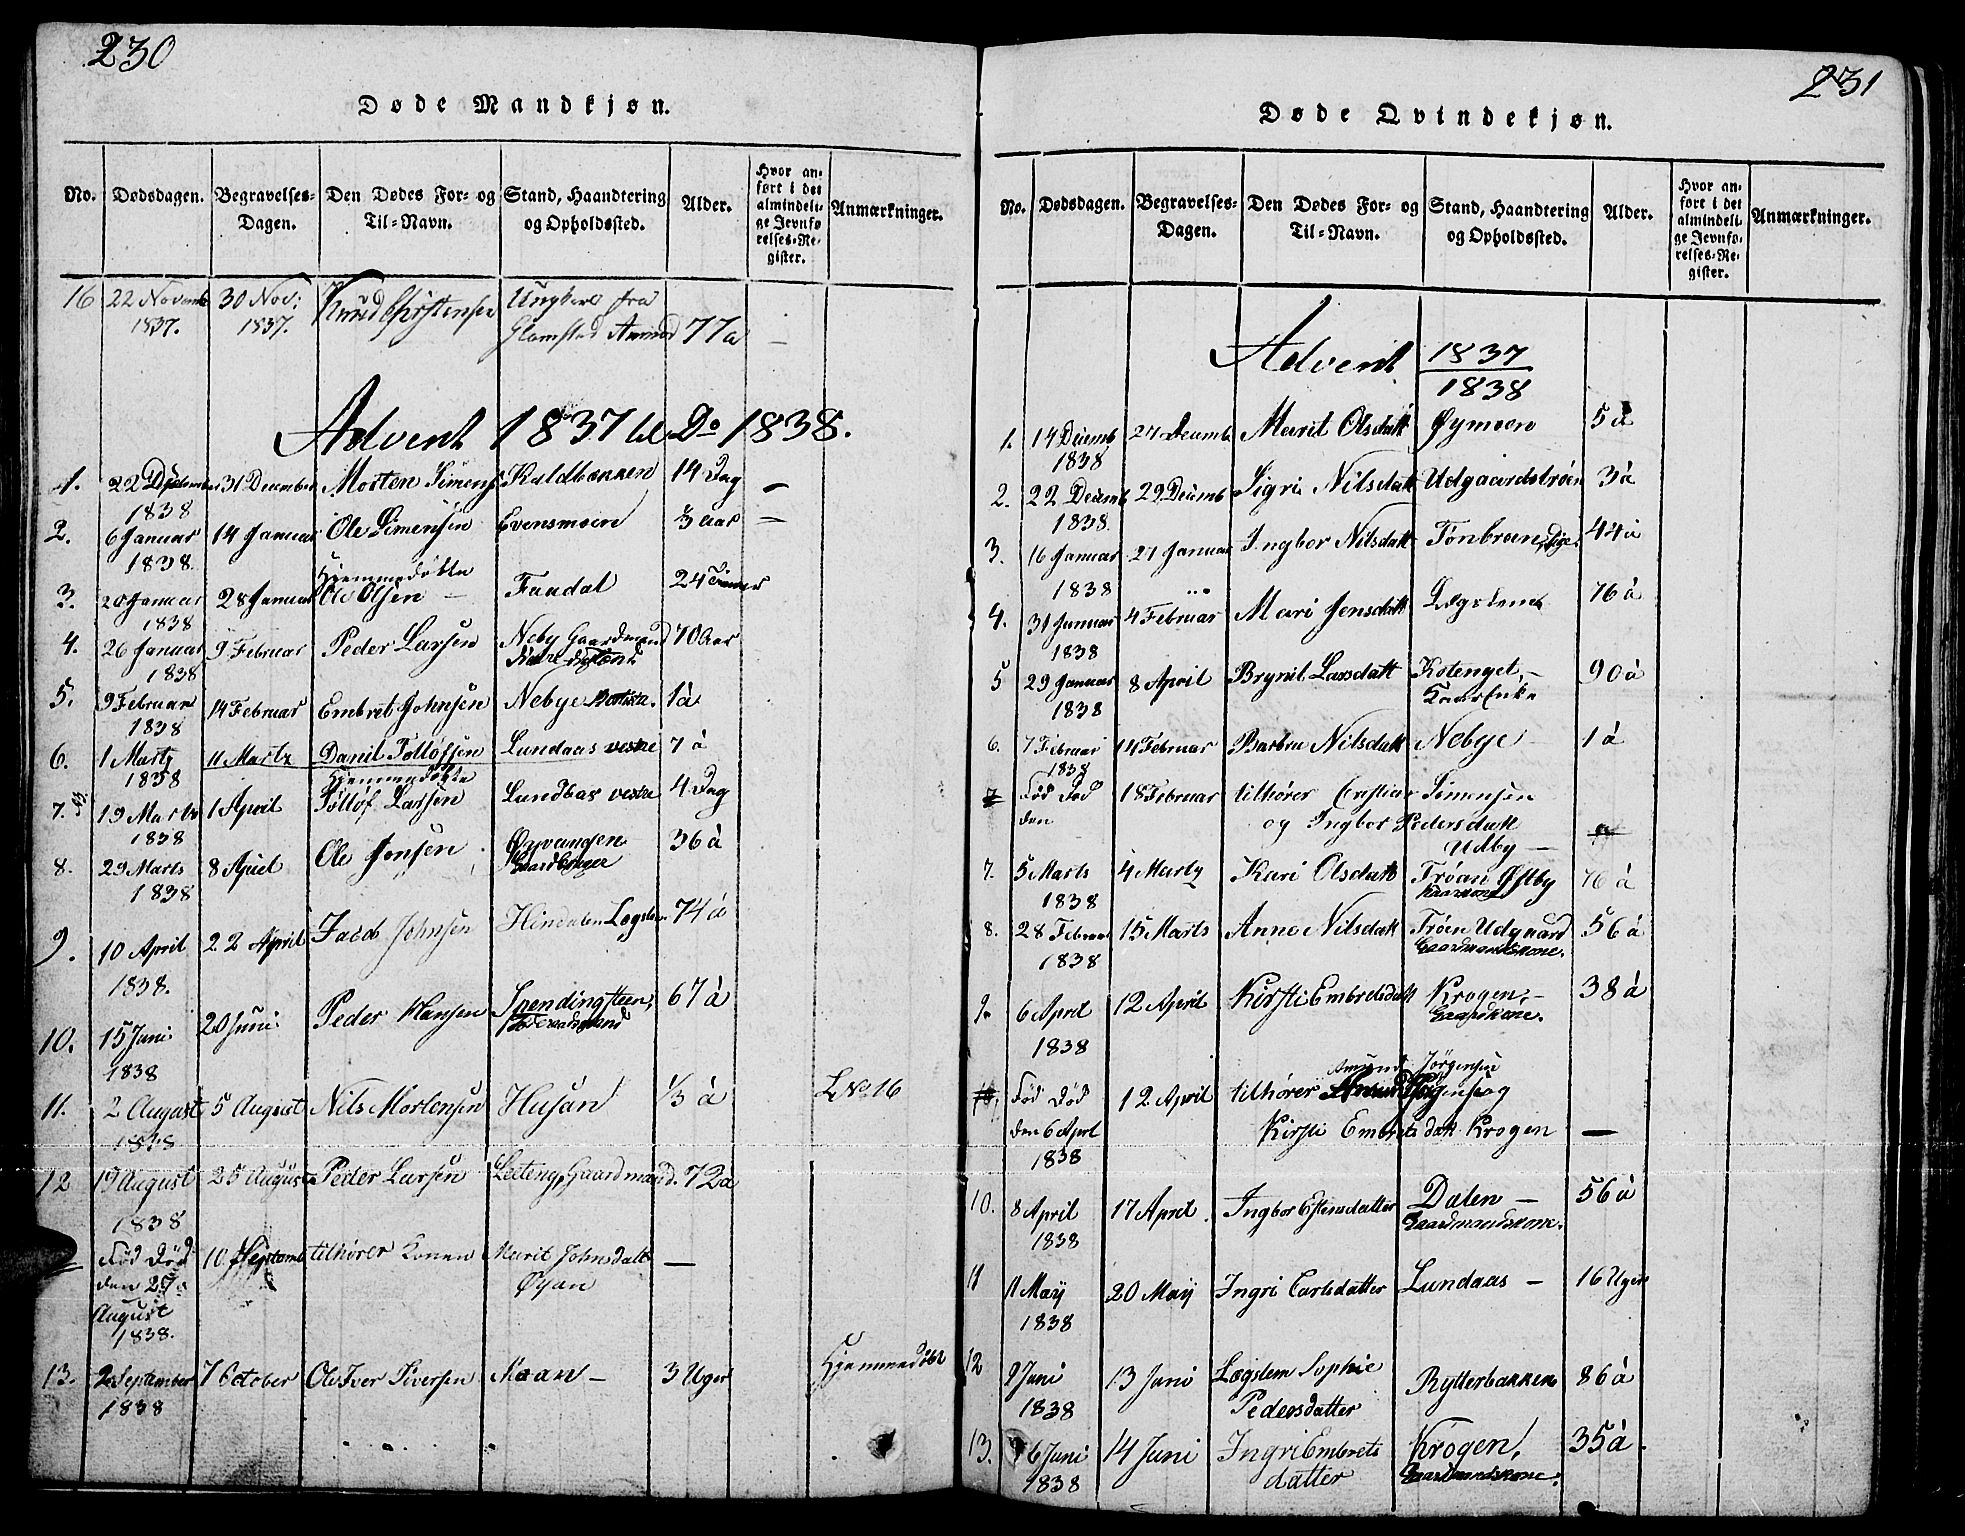 230
Døde Mandkjøn.
No. Dødsdagen. Begravelses-Dagen. Den Dødes For- og Til-Navn. Stand, Haandtering og Opholdssted. Alder. Hvor anført i det almindelige Jevnførelses-Register. Anmærkninger.
16 22 Novemb 1837. 30 Nov: 1837. Knud Christensen fra 77 a —
Advent 1837 til Do 1838.
1. 22 December 1838 31 December Morten Simens Kuldbækken 14 Dag —
2. 6 Januar 1838. 14 Januar Ole Simensen Evensmoen 3 Aar —
3. 20 Januar 1838 28 Januar Hjemmedøbte Ole Olsen — Faudal 24 Timer
4. 26 Januar 1838 9 Februar Peder Larsen Neby Gaardmand 70 Aar
5. 9 Februar 1838 14 Februar Embret Johnsen Nebye 1 à
6. 1 Martz 1838 11 Martz Daniel Tolløfsen Lundaas vestre 7 à
7. 19 Marts 1838 1 April Hjemmedøbte Tølløf Larsen Lundaas vestre 4 Dag
8. 29 Marts 1838 8 April Ole Jonsen 36 à
9. 10 April 1838. 22 April Jacob Johnsen 74 à
10. 15 Juni 1838 20 Juni Peder Hansen Spendingsteen, 67 à
11. 2 August 1838 5 August Nils Mortensen Husan 1/3 à L No 16
12 19 August 1838 25 August Peder Larsen Leteng, Gaardmand. 72 à
Død Død den 27 August 1838. 10 Septemb tilhører Konen Marit Johnsdatt Øyan —
13. 2 September 1838 7 October Ole Iver Iversen Moan — 3 Uger Hjemmedøbt
231
Døde Qvindekjøn.
No. Dødsdagen. Begravelses-Dagen. Den Dødes For- og Til-Navn. Stand, Haandtering og Opholdssted. Alder. Hvor anført i det almindelige Jevnførelses-Register. Anmærkninger.
Advent 1837
1838
1. 14 Decemb 1838 27 Decemb Marit Olsdatt Øymoen 5 à
2. 22 Decemb 1838. 29 Decemb Sigri Nilsdatt Udgaardstrøen 3 à
3. 16 Januar 1838 27 Januar Ingbor Nilsdatt Tønbræn, Pige. 44 à
4. 31 Januar 1838 4 Februar Mari Jensdatt 76 à
5 29 Januar 1838 8 April Brynil Larsdatt Kotenget, — 90 à
6. 7 Februar 1838 14 Februar Barbru Nilsdatt Nebye 1 à
7 Død Død den 18 Februar tilhører Cristian Simensen
og Ingbor Pedersdatt
Udby —
7. 5 Marts 1838 4 Martz Kari Olsdatt Trøan Østby 76 à
8. 28 Februar 1838 15 Marts Anne Nilsdatt Trøen Udgaard Gaardmandskone. 56 à
9. 6 April 1838 12 April Kirsti Embretsdatt Krogen, — 38 à
10. Død Død den 6 April 1838 12 April tilhører Amund Jörgensen og
Kirsti Embretsdatt Krogen —
10. 8 April 1838 17 April. Ingbor Estensdatter Dalen — Gaardmandskone. 56 à
11 11 Maÿ 1838 20 Maÿ Ingri Carlsdatter Lundaas — 16 Uger
12 9 Juni 1838 13 Juni Sophie Pedersdatter Rytterbakken 86 à
13. 6 Juni 1838 14 Juni Ingri Embrets datter Krogen, Gaardmandskone. 35 à